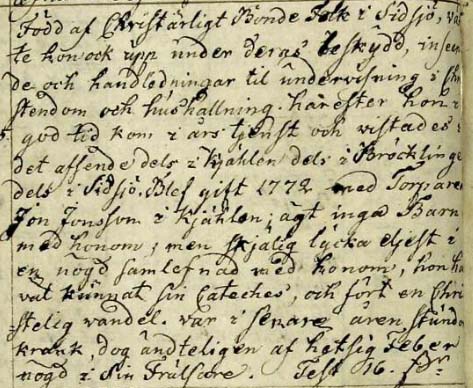 Född af Christärligt Bonde Folk i Sidsjö, väx
te hon ock upp under deras beskydd, inseen
de och handledningar til undervisning i Chri
stendom och hushallning. härefter hon i
god tid kom i ars tjenst och vistades i
det afseende dels i Kjählen dels i Bräcklinge
dels i Sidsjö. Blef gift 1772 med Torparen
Jon Jonsson i Kjählen; ägt inga Barn
med honom; men skjälig lycka eljest i
en nögd samlefnad med honom, hon ha
väl kunnat sin Cateches, och fört en Chri
stelig vandel. var i senare åren stund
krank, dog ändteligen af hetsig Feber
nögd i Sin Frälsare. Test 16.